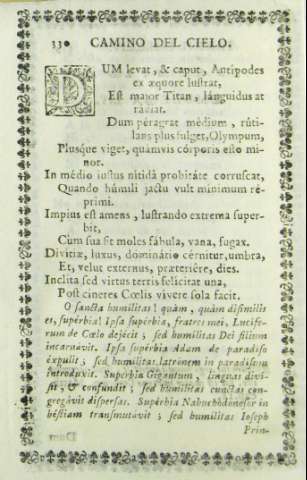 330 CAMINO DEL CIELO.
DUM levat, & caput, Antipodes
ex æquore lustrat,
Est maior Titan, lánguidus at
rádiat.
Dum péragrat médium, rúti-
lans plus fulget, Olympum,
Plusque viget, quámvis córporis esto mi-
nor.
In médio iustus nitidâ probitáte corruscat,
Quando húmili jactu vult mínimum ré-
primi.
Impius est amens, lustrando extrema super-
bit,
Cum sua sit moles fábula, vana, fugax.
Divitiæ, luxus, dominátio cérnitur, umbra,
Et, velut externus, præteriére, dies.
Inclita sed virtus terris felicitat una,
Post cineres Cœlis vivere sola facit.
O sancta humilitas! quàm, quàm disimilis
es, supérbia! Ipsa supérbia, fratres mei, Lucife-
rum de Cœlo dejécit; sed humílitas Dei filium
incarnávit. Ipsa supérbia Adam de paradíso
éxpulit; sed humilitas latronem in paradísum
introdúxit. Supérbia Gigantum, linguas divi-
sit, & confundit; sed humilitas cunctas con-
gregávit dispersas. Supérbia Nabuchodonósor in
béstiam transmutávit; sed humílitas Ioseph
Prin-